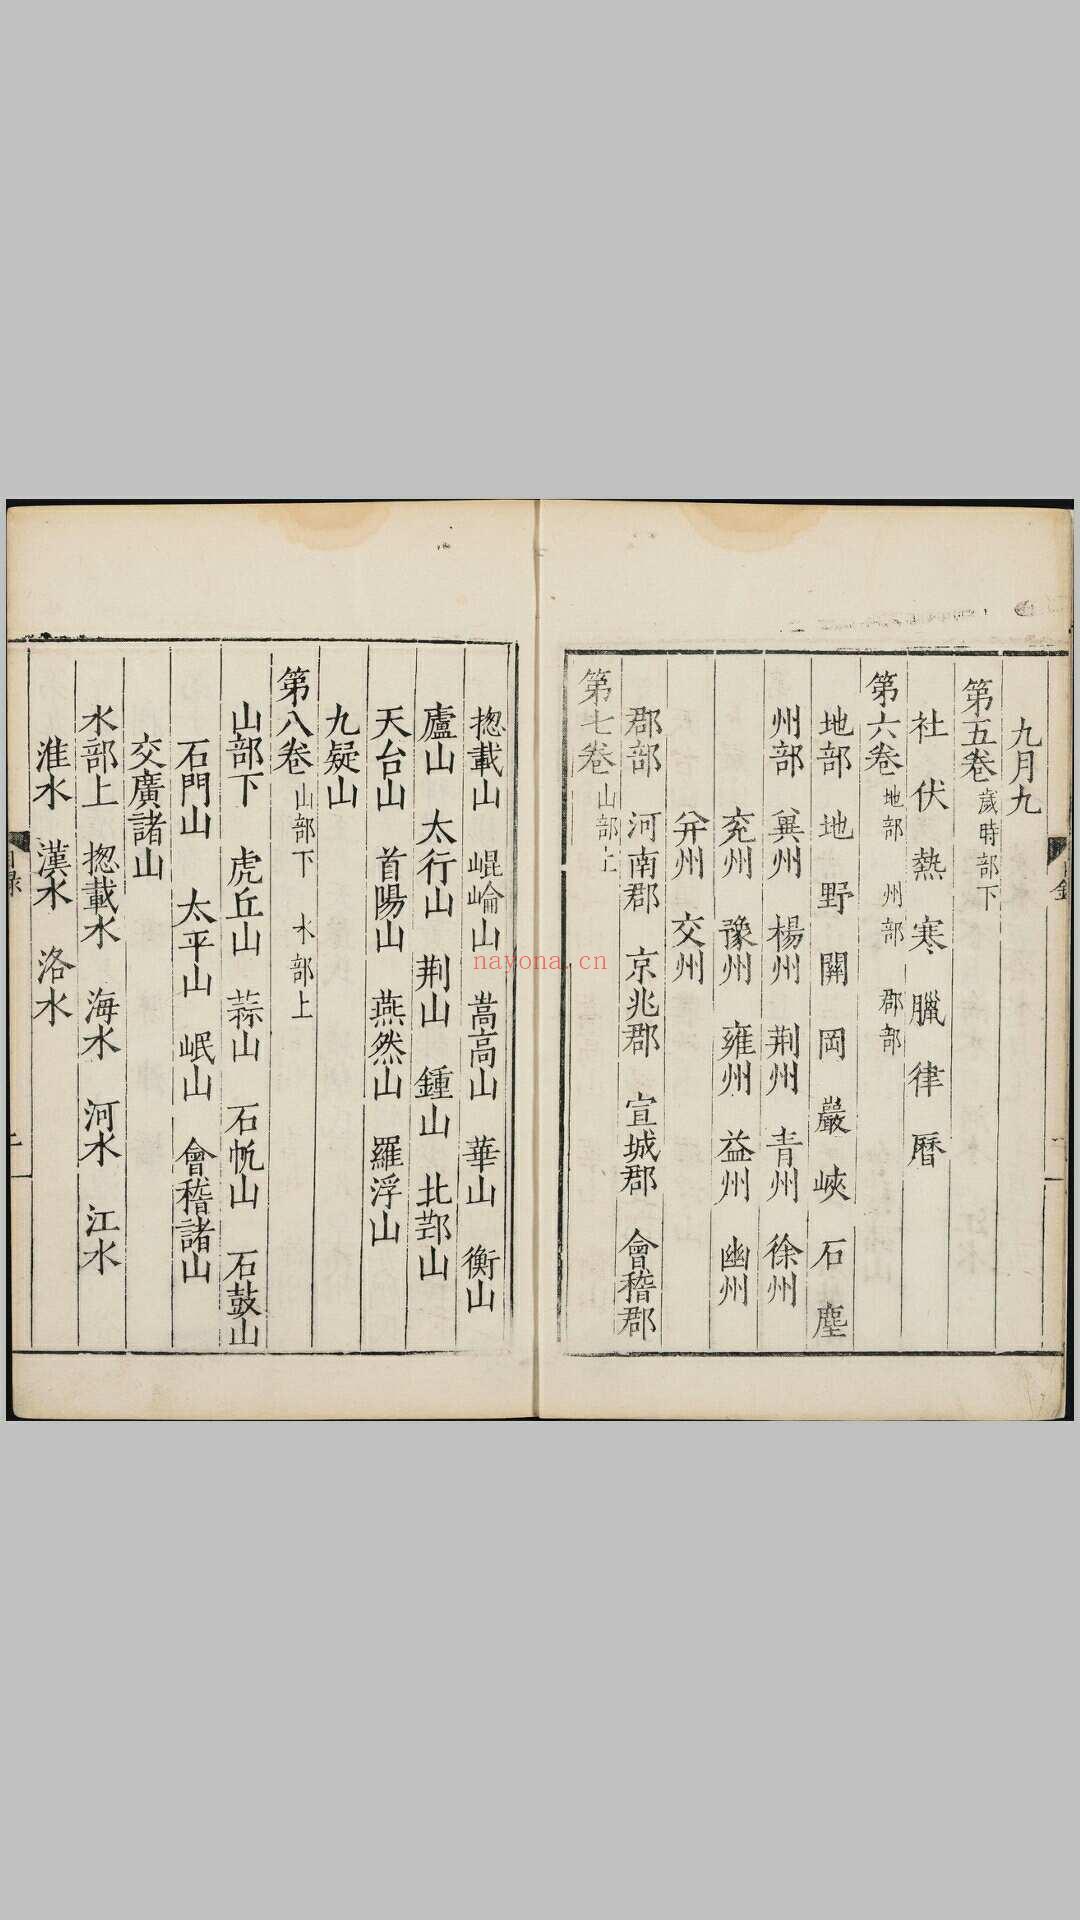 九月九
第五卷 歲時部下
社 伏 熱 寒 臘 律 曆
第六卷 地部 州部 郡部
地部 地 野 關 岡 巖 峽 石 塵
州部 冀州 楊州 荆州 青州 徐州
兖州 豫州 雍州 益州 幽州
并州 交州
郡部 河南郡 京兆郡 宣城郡 會稽郡
第七卷 山部上
揔載山 崐崘山 嵩高山 華山 衡山
廬山 太行山 荆山 鍾山 北邙山
天台山 首陽山 燕然山 羅浮山
九疑山
第八卷 山部下 水部上
山部下 虎丘山 蒜山 石帆山 石鼓山
石門山 太平山 岷山 會稽諸山
交廣諸山
水部上 揔載水 海水 河水 江水
淮水 漢水 洛水
nayona.cn